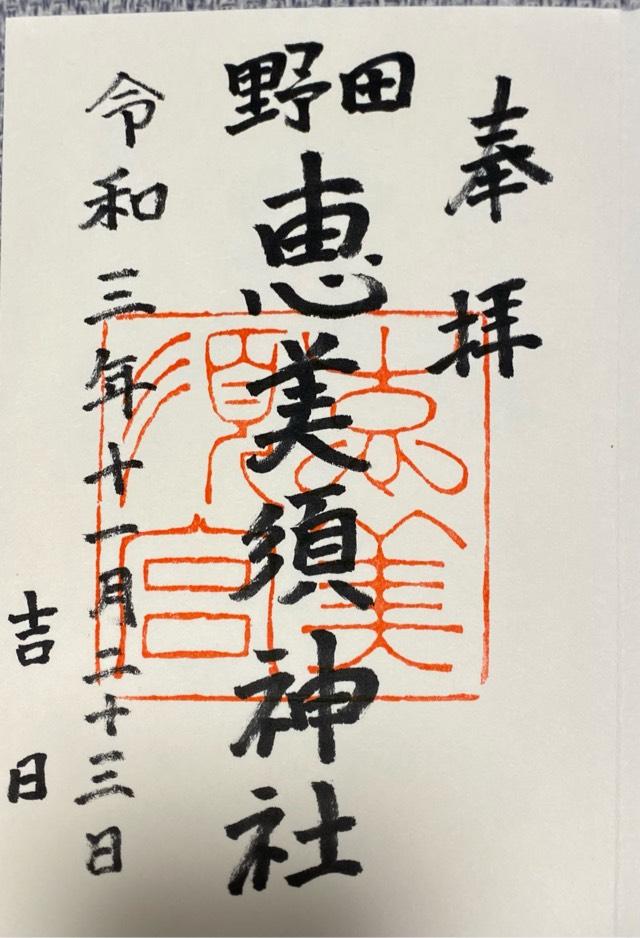 奉拝
野田
恵美須神社
恵美須宮
令和三年十一月二十三日
吉日